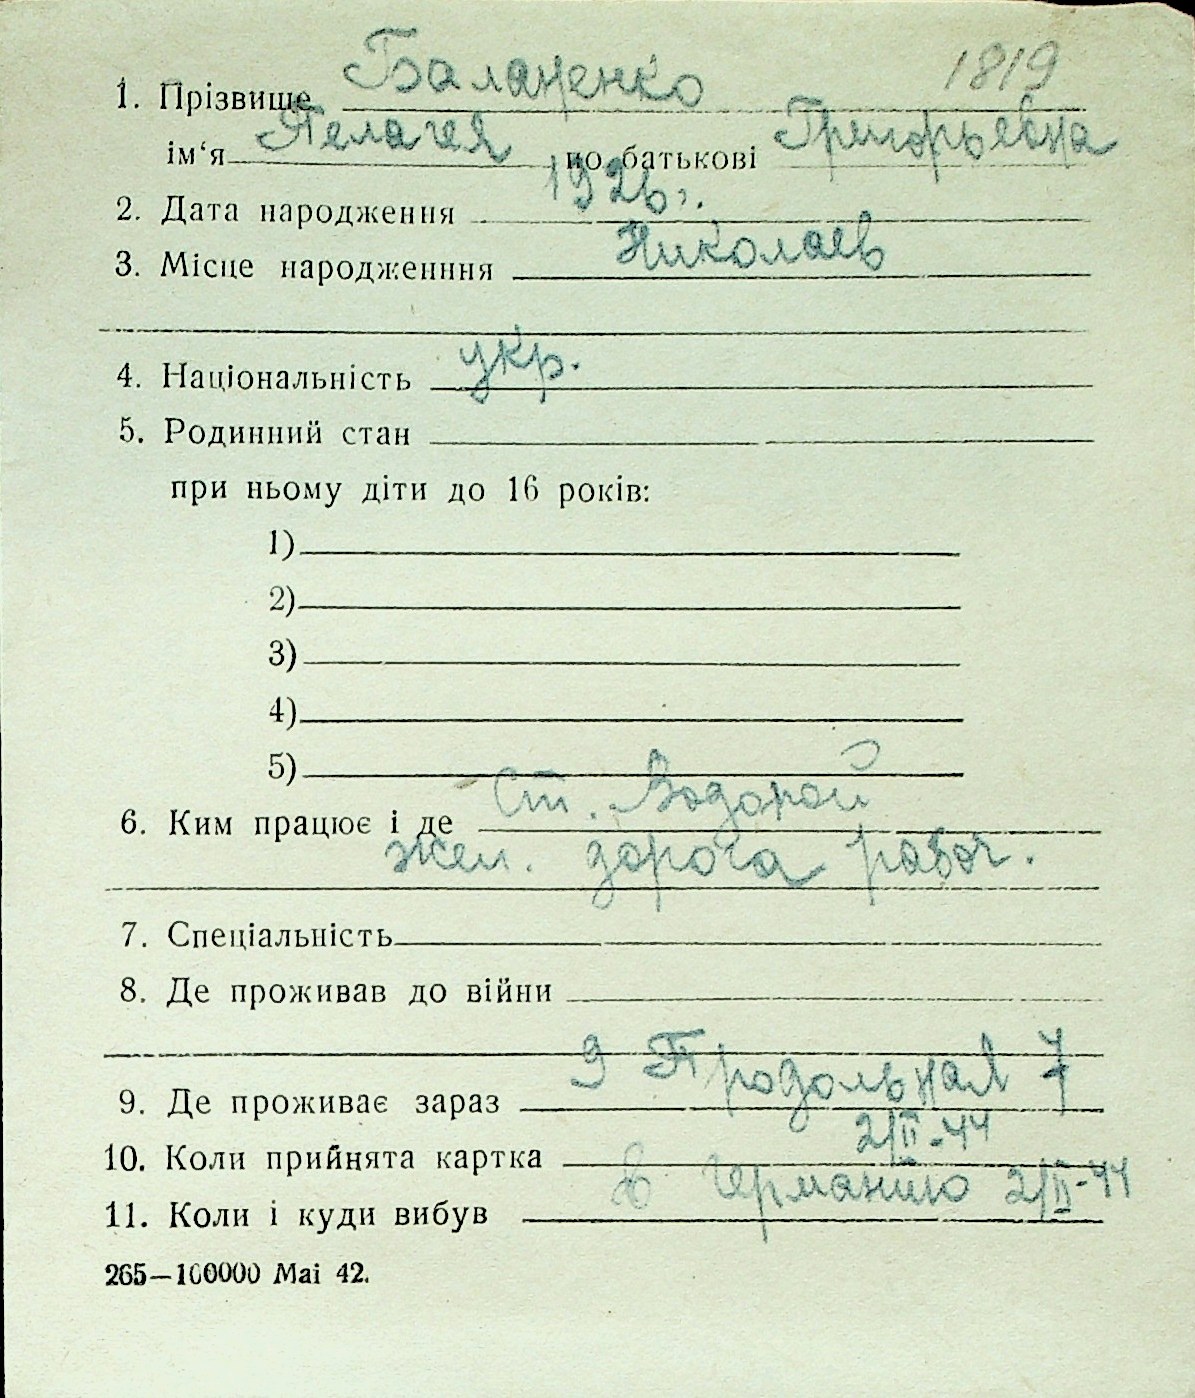 1819
1. Прізвище Баланенко
ім‘я Пелагея по батькові Григорьевна
2. Дата народження 1926 г.
3. Місце народженння Николаев
4. Національність укр.
5. Родинний стан
при ньому діти до 16 років:
1)
2)
3)
4)
5)
6. Ким працює і де Ст. Водопой
жел. дорога рабоч.
7. Спеціальність
8. Де проживав до війни
9. Де проживає зараз 9 Продольная 7
10. Коли прийнята картка 2/II-44
11. Коли і куди вибув в Германию 2/II-44
265—100000 Mai 42.